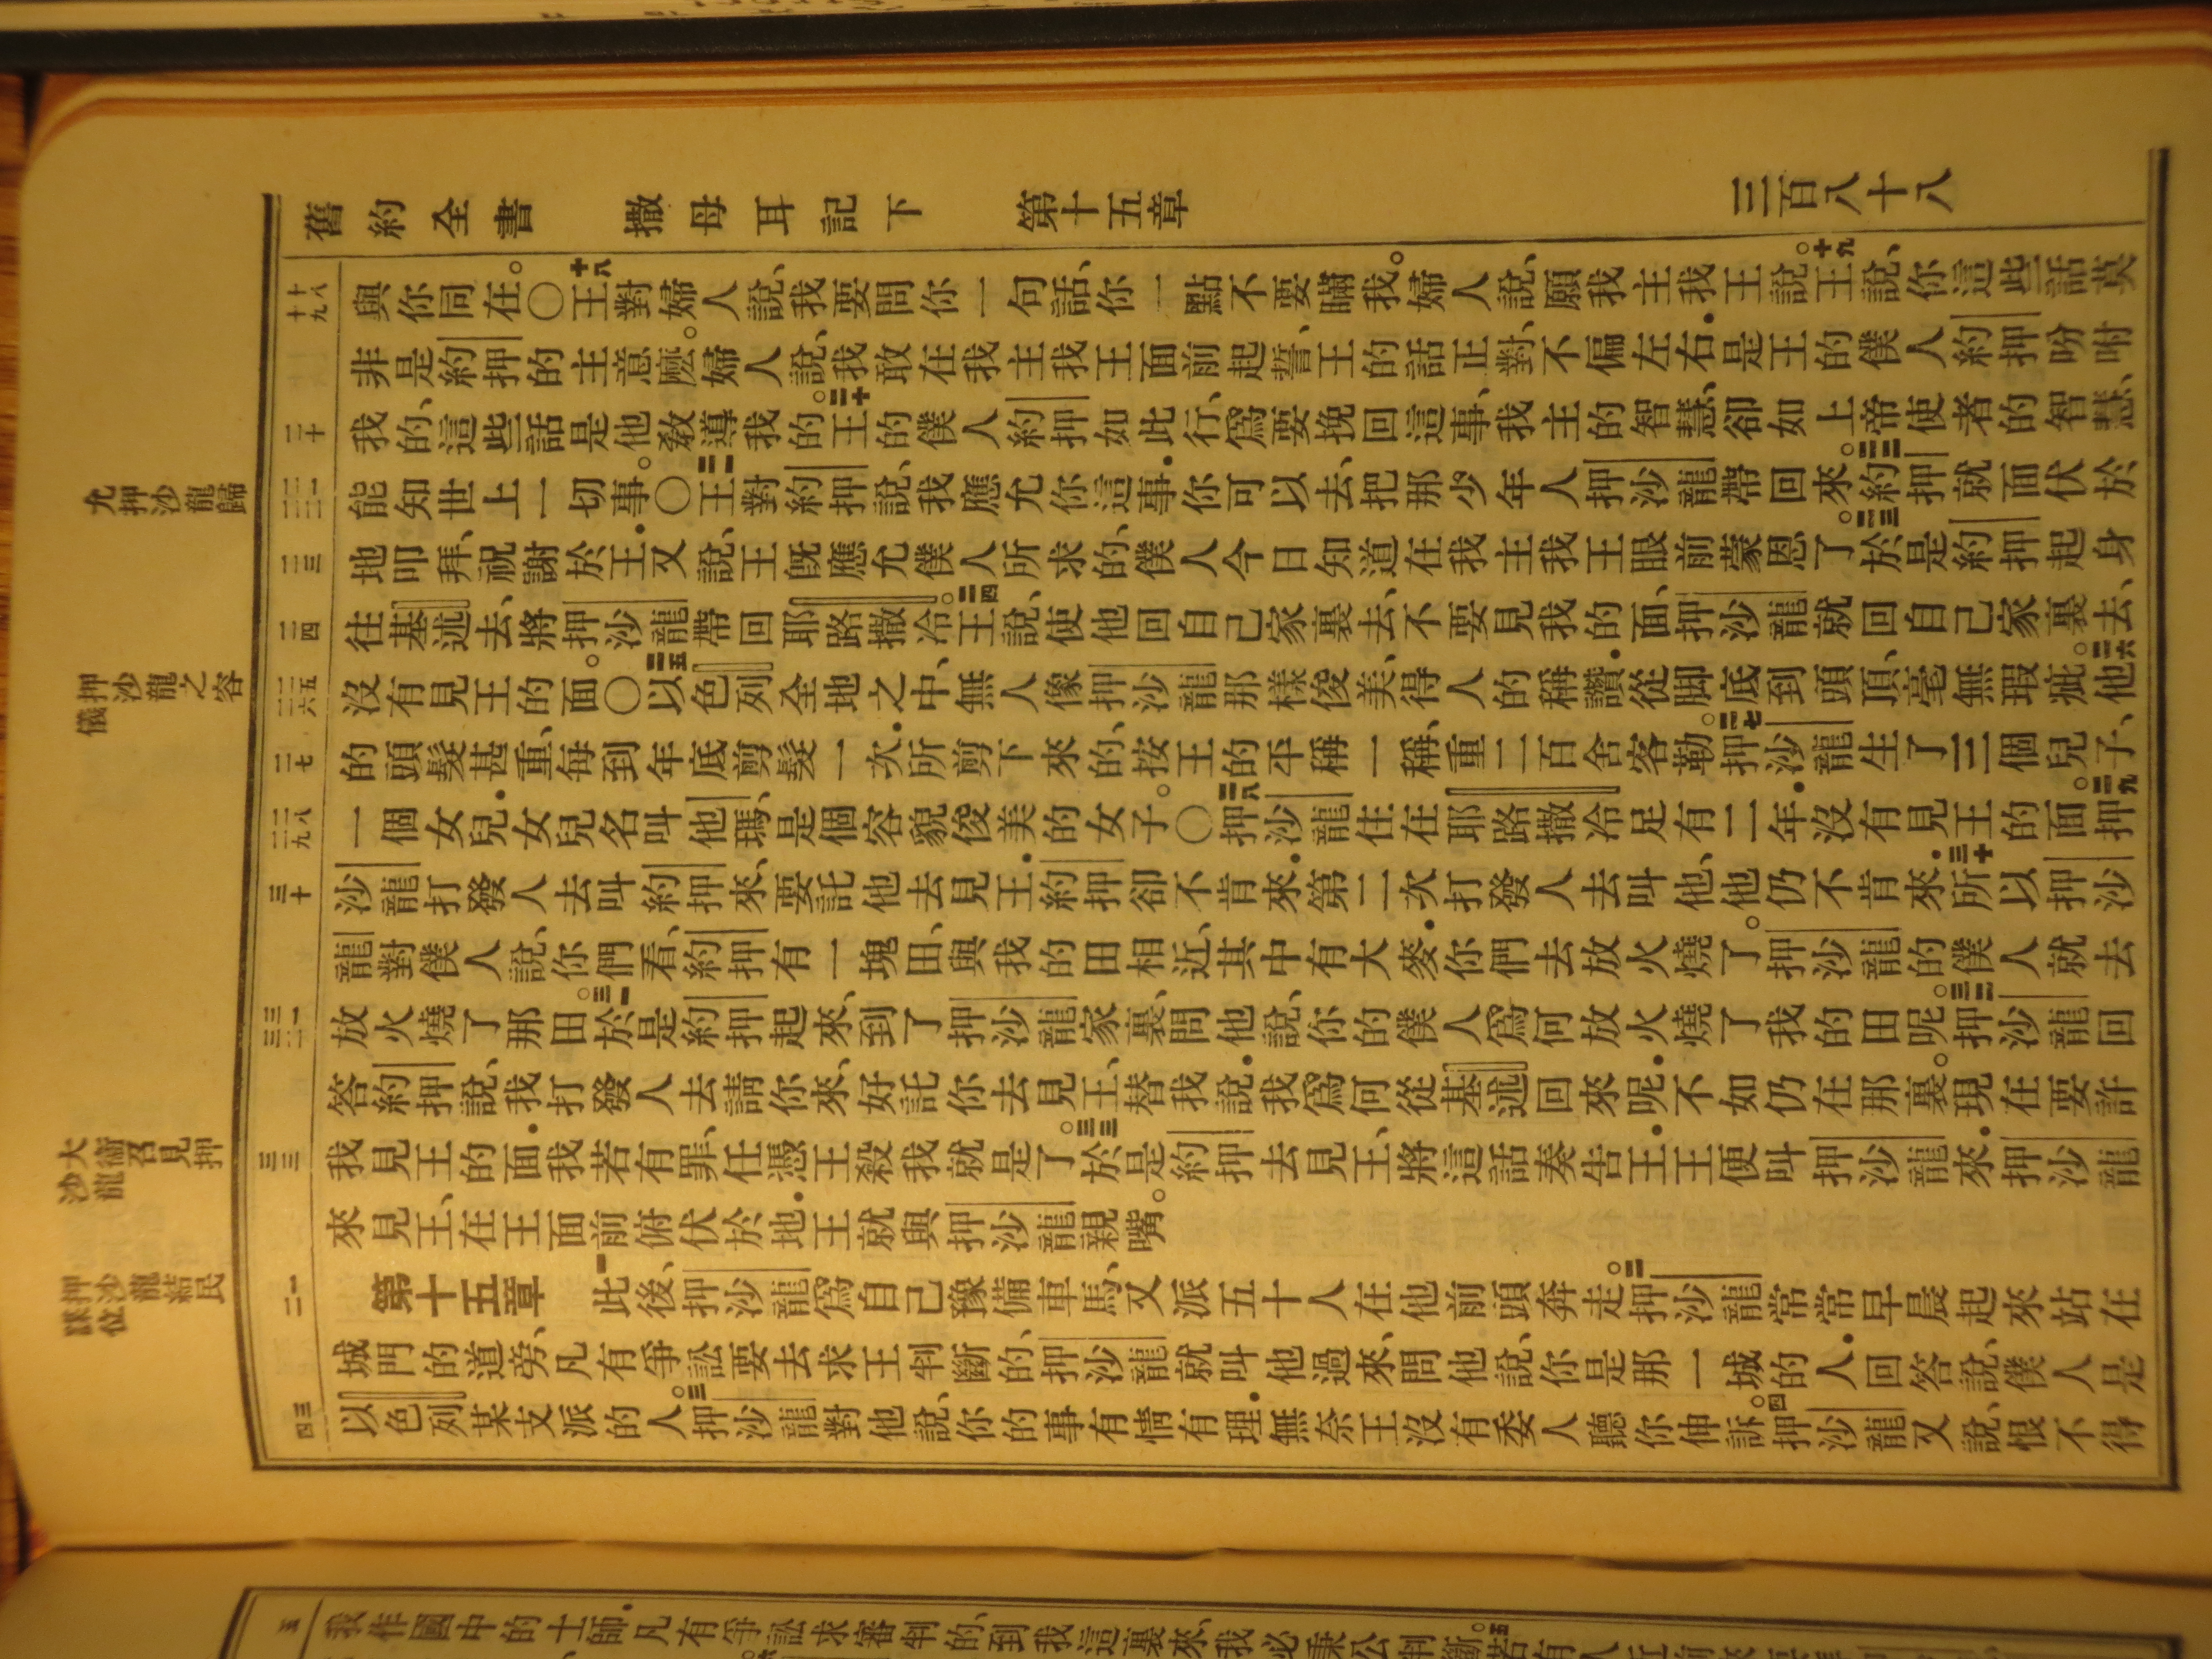 舊約全書 撒母耳記下 第十五章 三百八十八
十八 十九
與你同在。〇十八王對婦人說、我要問你一句話、你一點不要瞞我。婦人說、願我主我王說。十九王說、你這些話莫
非是約押的主意麼。婦人說、我敢在我主我王面前起誓、王的話正對、不偏左右．是王的僕人約押吩咐
二十
我的、這些話是他教導我的。二十王的僕人約押如此行、爲要挽回這事、我主的智慧、卻如上帝使者的智慧、
允押沙龍歸
二一 二二
能知世上一切事。〇二一王對約押說、我應允你這事．你可以去、把那少年人押沙龍帶回來。二二約押就面伏於
二三
地叩拜、祝謝於王．又說、王既應允僕人所求的、僕人今日知道在我主我王眼前蒙恩了。二三於是約押起身
二四
往基述去、將押沙龍帶回耶路撒冷。二四王說、使他回自己家裏去、不要見我的面、押沙龍就回自己家裏去、
押沙龍之容儀
二五 二六
沒有見王的面。〇二五以色列全地之中、無人像押沙龍那樣俊美、得人的稱讚．從脚底到頭頂、毫無瑕疵。二六他
二七
的頭髮甚重、每到年底剪髮一次．所剪下來的、按王的平稱一稱、重二百舍客勒。二七押沙龍生了三個兒子、
二八 二九
一個女兒．女兒名叫他瑪、是個容貌俊美的女子。〇二八押沙龍住在耶路撒冷足有二年．沒有見王的面。二九押
三十
沙龍打發人去叫約押來、要託他去見王．約押卻不肯來．第二次打發人去叫他、他仍不肯來．三十所以押沙
龍對僕人說、你們看、約押有一塊田、與我的田相近、其中有大麥．你們去放火燒了。押沙龍的僕人就去
三一 三二
放火燒了那田。三一於是約押起來、到了押沙龍家裏、問他說、你的僕人爲何放火燒了我的田呢。三二押沙龍回
答約押說、我打發人去請你來、好託你去見王、替我說．我爲何從基述回來呢．不如仍在那裏。現在要許
大衛召見押沙龍
三三
我見王的面．我若有罪、任憑王殺我就是了。三三於是約押去見王、將這話奏告王．王便叫押沙龍來．押沙龍
來見王、在王面前俯伏於地．王就與押沙龍親嘴。
押沙龍結民謀位
一 二
第十五章 一此後、押沙龍爲自己豫備車馬、又派五十人在他前頭奔走。二押沙龍常常早晨起來站在
城門的道旁、凡有爭訟要去求王判斷的、押沙龍就叫他過來、問他說、你是那一城的人．回答說、僕人是
三 四
以色列某支派的人。三押沙龍對他說、你的事有情有理．無奈王沒有委人聽你伸訴。四押沙龍又說、恨不得
五
我作國中的士師．凡有爭訟求審判的、到我這裏來、我必秉公判斷。五若有人近前來